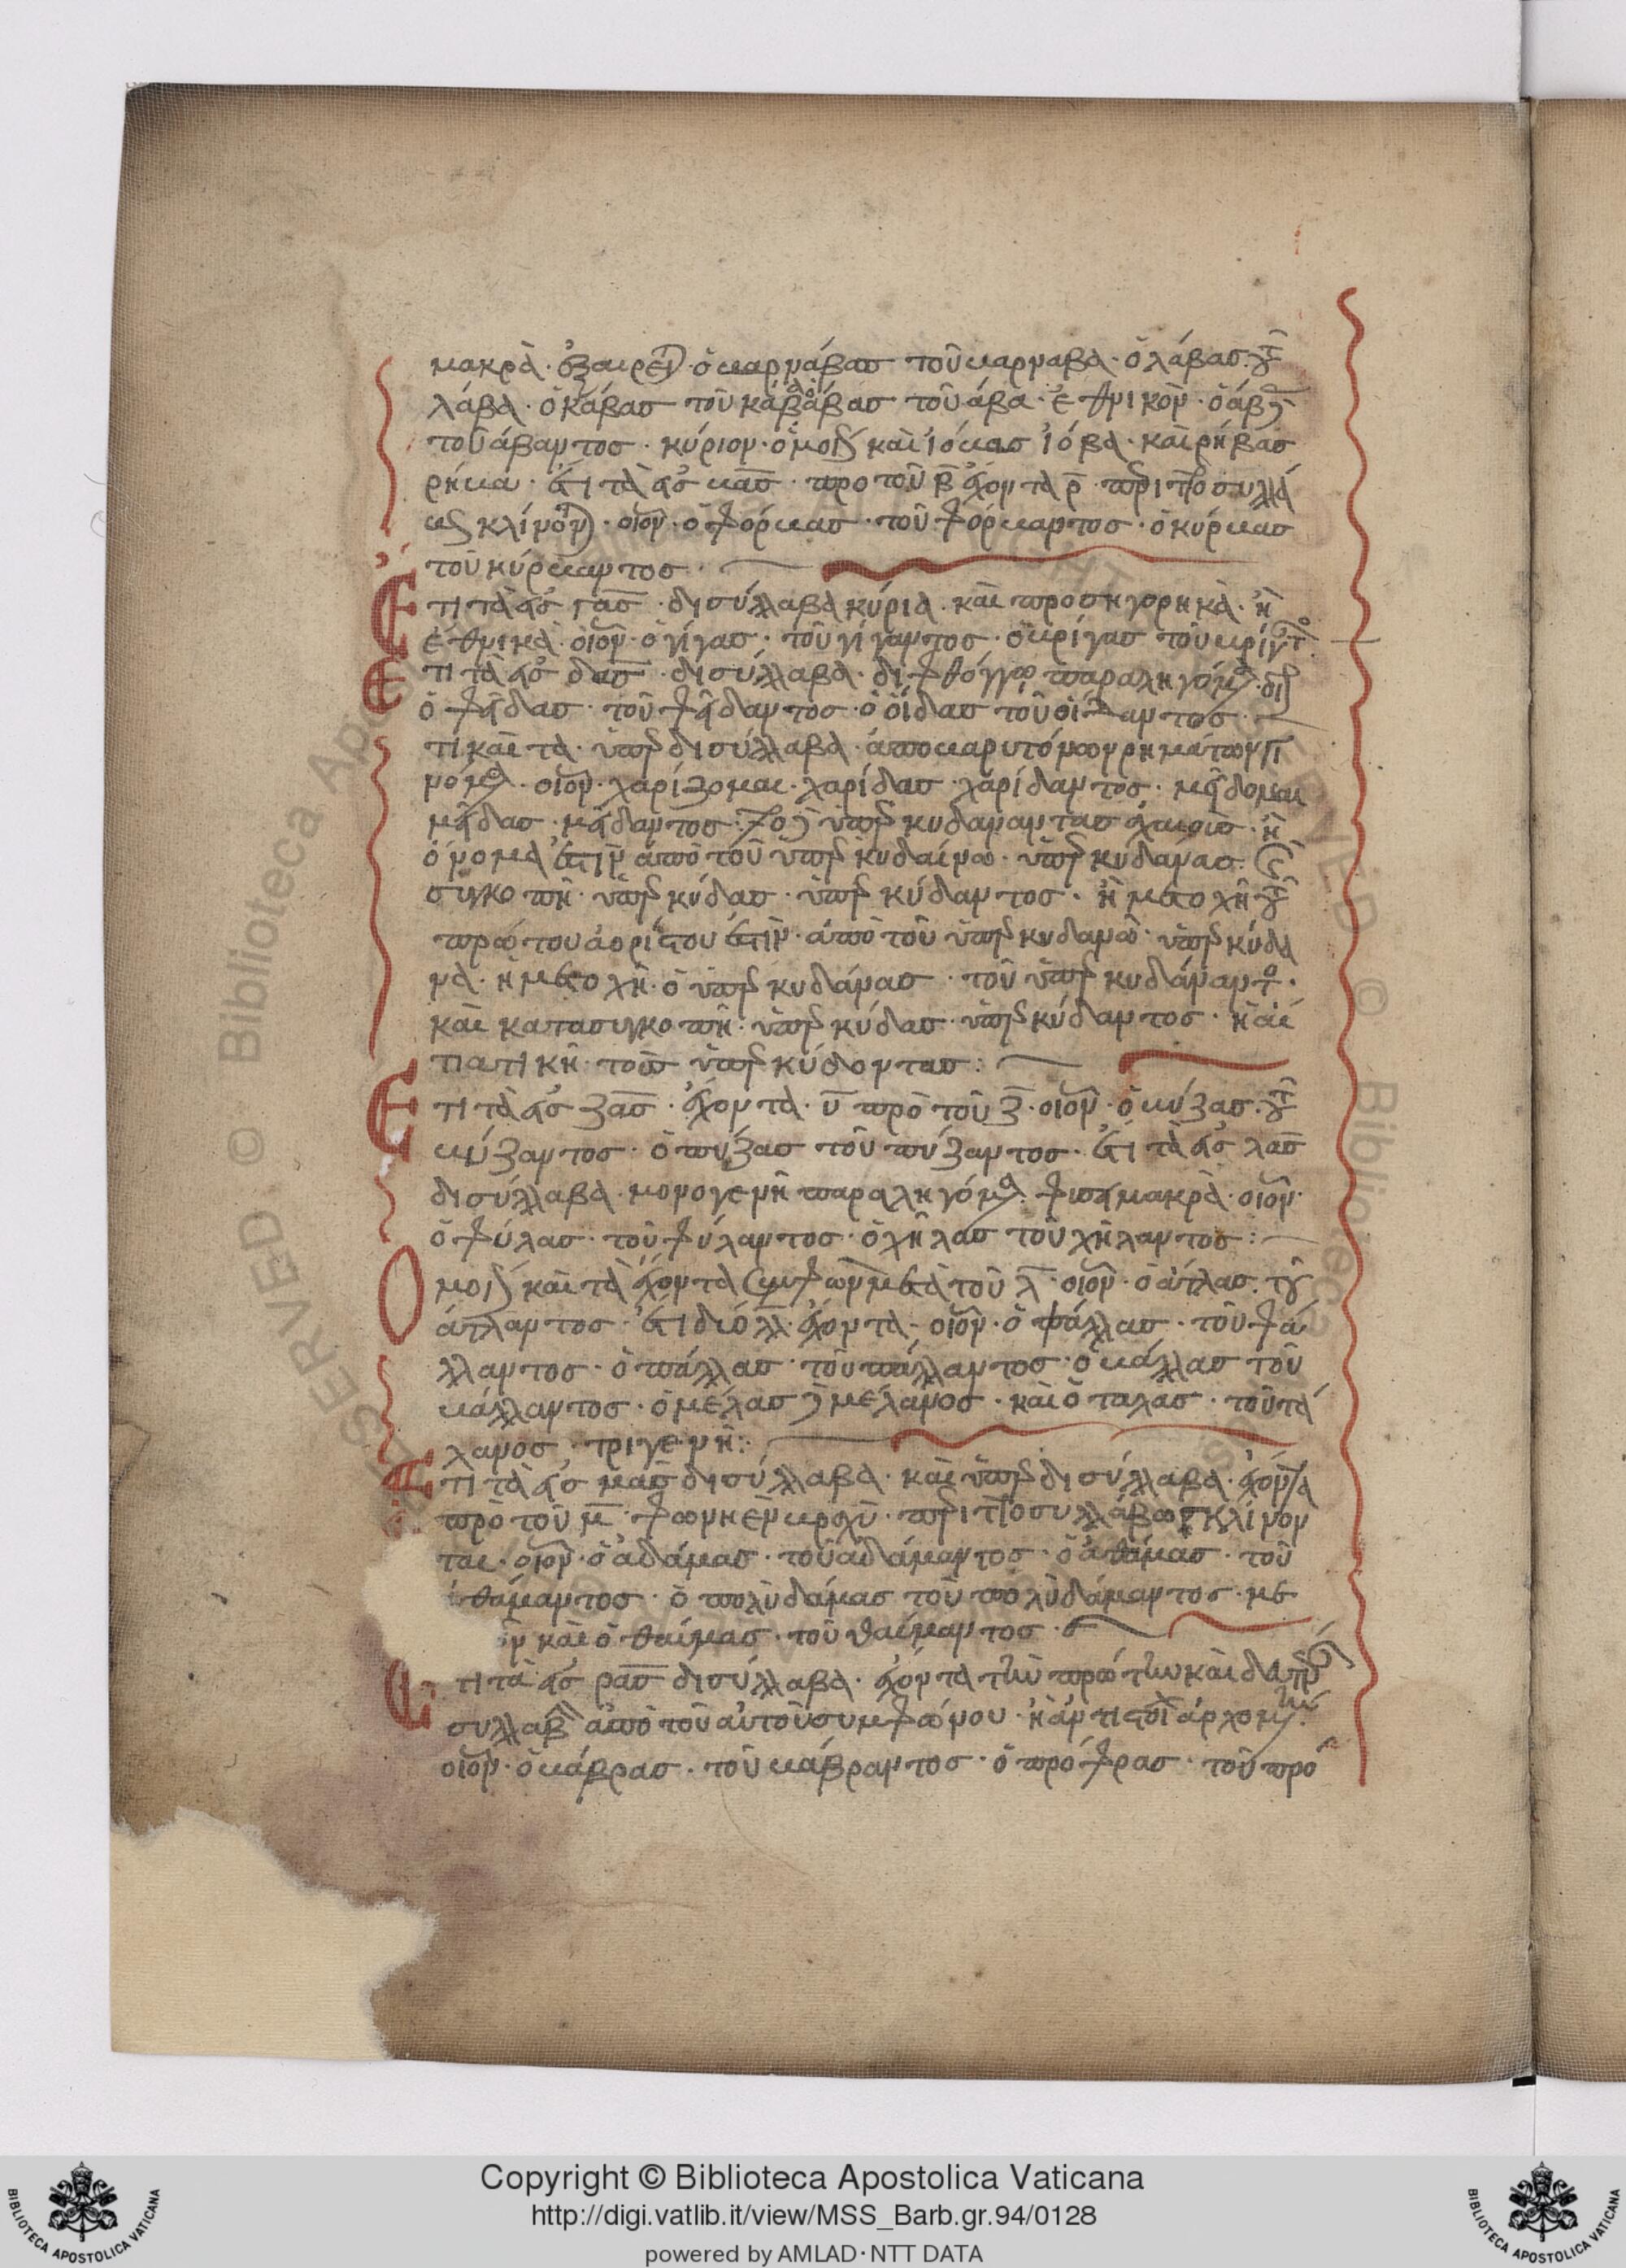 μακρὰ· ὁ βαρνάβας τοῦ βαρναβα· ὁ λάβας·
λάβα· ὁ κάβας τοῦ κάβα· ἄβας τοῦ ἄβα· ἐθνικὸν· ὁ ἄβας
τοῦ ἄβαντος· κύριον· ὁμοί καὶ ἰόβας ἰόβα· καὶ ρήβας
ρήβα· ἔτι τὰ εἰς βας· προ τοῦ β ἔχοντα ρ· περιττοσυλλά
βως κλίνονται· οἷον· ὁ φόρβας· τοῦ φόρβαντος· ὁ κύρβας
τοῦ κύρβαντος·
Ετι τὰ εἰς γας· δισύλλαβα κύρια· καὶ προσηγορηκὰ· ἢ
ἐθνικὰ· οἷον· ὁ γίγας· τοῦ γίγαντος· ὁ βρίγας τοῦ
Ετι τὰ εἰς δας· δισύλλαβα· διφθόγγω παραληγόμ
ὁ φείδας· τοῦ φείδαντος· ὁ οἴδας τοῦ οἴδαντος·
τι καὶ τὰ· ὑπερδισύλλαβα· ἀπο βαρυτόνων ρημάτων
οἷον· χαρίζομαι· χαρίδας· χαρίδαντος· μείδομαι
μείδας· μείδαντος· ὑπερκυδαναντας ἀχαιοὺς· ἢ
ὄνομα ἐστιν ἀπὸ τοῦ ὑπερκυδαίνω· ὑπερκυδάνας·
συγκοπῆ· ὑπερκύδας· ὑπερκύδαντος· ἢ μετοχὴ
πρώτου ἀορίστου ἐστὶν· ἀπὸ τοῦ ὑπερκυδανῶ· ὑπερκύδα
να· ἡ μετοχὴ· ὁ ὑπερκυδάνας· τοῦ ὑπερκυδάναντ·
καὶ κατασυγκοπὴ· ὑπερκύδας· ὑπερκύδαντος· ἡ αἰ
τιατικὴ· τοὺς ὑπερκύδοντας:
Ετι τὰ εἰς ζας· ἔχοντα· υ πρὸ τοῦ ζ· οἷον· ὁ βύζας·
βύζαντος· ὁ πύζας τοῦ πύζαντος· ἔτι τὰ εἰς λας
δισύλλαβα· μονογενῆ παραληγόμ φύσει μακρὰ· οἷον·
ὁ φύλας· τοῦ φύλαντος· ὁ χήλας τοῦ χήλαντος:
Ομοί καὶ τὰ ἔχοντα σύμφωνον μετὰ τοῦ λ· οἷον· ὁ ἄτλας·
ἄτλαντος· ἔτι δύο λλ· ἔχοντα· οἷον· ὁ φάλλας· τοῦ φά
λλαντος· ὁ πάλλας· τοῦ πάλλαντος· ὁ βάλλας τοῦ
βάλλαντος· ὁ μέλας μέλανος· καὶ ὁ ταλὰς· τοῦ τά
λανος· τριγενῆ:
Ετι τὰ εἰς μας δισύλλαβα· καὶ ὑπερδισύλλαβα· ἔχοντα
πρὸ τοῦ μ· φωνῆεν βραχὺ· περιττοσυλλάβως κλίνον
ται· οἷον· ὁ ἀδάμας· τοῦ ἀδάμαντος· ὁ ἀθάμας· τοῦ
ἀθάμαντος· ὁ πολυδάμας τοῦ πολυδάμαντος· με
ν καὶ ὁ θαύμας· τοῦ θαύμαντος·
Ετι τὰ εἰς ρας δισύλλαβα· ἔχοντα τὴν πρώτην καὶ δευτέραν
συλλαβὴν ἀπὸ τοῦ αὐτοῦ συμφώνου· ἢ ἀντιστοί ἀρχομ
οἷον· ὁ βάβρας· τοῦ βάβραντος· ὁ πρόφρας· τοῦ προ
Copyright © Biblioteca Apostolica Vaticana
http://digi.vatlib.it/view/MSS_Barb.gr.94/0128
powered by AMLAD·NTT DATA